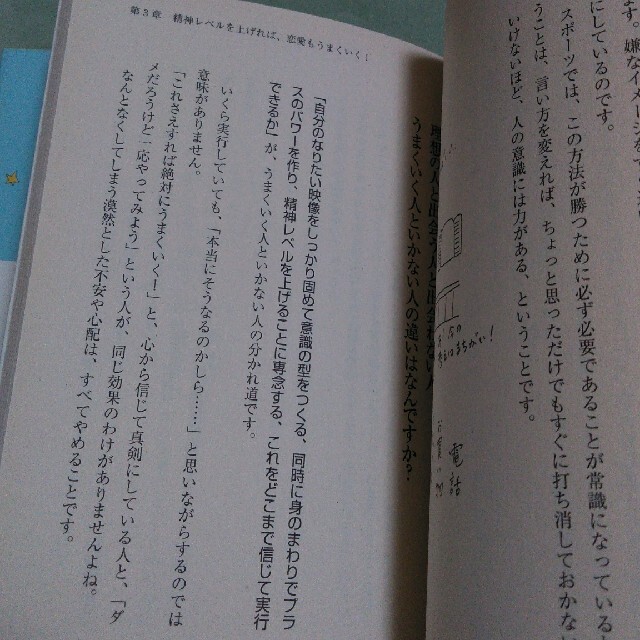 す。嫌なイメージを
にしているのです。
スポーツでは、この方法が勝つために必ず必要であることが常識になっている
うことは、言い方を変えれば、ちょっと思っただけでもすぐに打ち消しておかな
いけないほど、人の意識には力がある、ということです。
まちがい!
電話
第3章 精神レベルを上げれば、恋愛もうまくいく!
うまくいく人といかない人の違いはなんですか?
「自分のなりたい映像をしっかり固めて意識の型をつくる、同時に身のまわりでプラ
スのパワーを作り、精神レベルを上げることに専念する、これをどこまで信じて実行
できるか」が、うまくいく人といかない人の分かれ道です。
いくら実行していても、「本当にそうなるのかしら……」と思いながらするのでは
意味がありません。
「これさえすれば絶対にうまくいく!」と、心から信じて真剣にしている人と、「ダ
メだろうけど一応やってみよう」という人が、同じ効果のわけがありませんよね。
なんとなくしてしまう漠然とした不安や心配は、すべてやめることです。